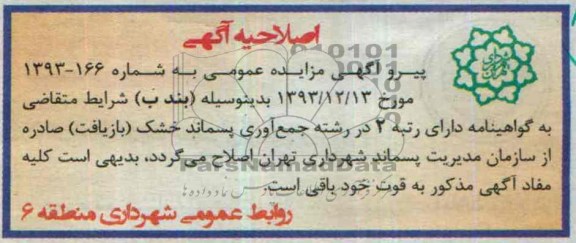 اصلاحیه آگهی
پیرو آگهی مزایده عمومی به شماره ۱۶۶-۱۳۹۳
مورخ ۱۳۹۳/۱۲/۱۳ بدینوسیله (بند ب) شرایط متقاضی
به گواهینامه دارای رتبه ۲ در رشته جمع‌آوری پسماند خشک (بازیافت) صادره
از سازمان مدیریت پسماند شهرداری تهران اصلاح می‌گردد، بدیهی است کلیه
ParsNamadData
مفاد آگهی مذکور به قوت خود باقی است.
روابط عمومی شهرداری منطقه ۶